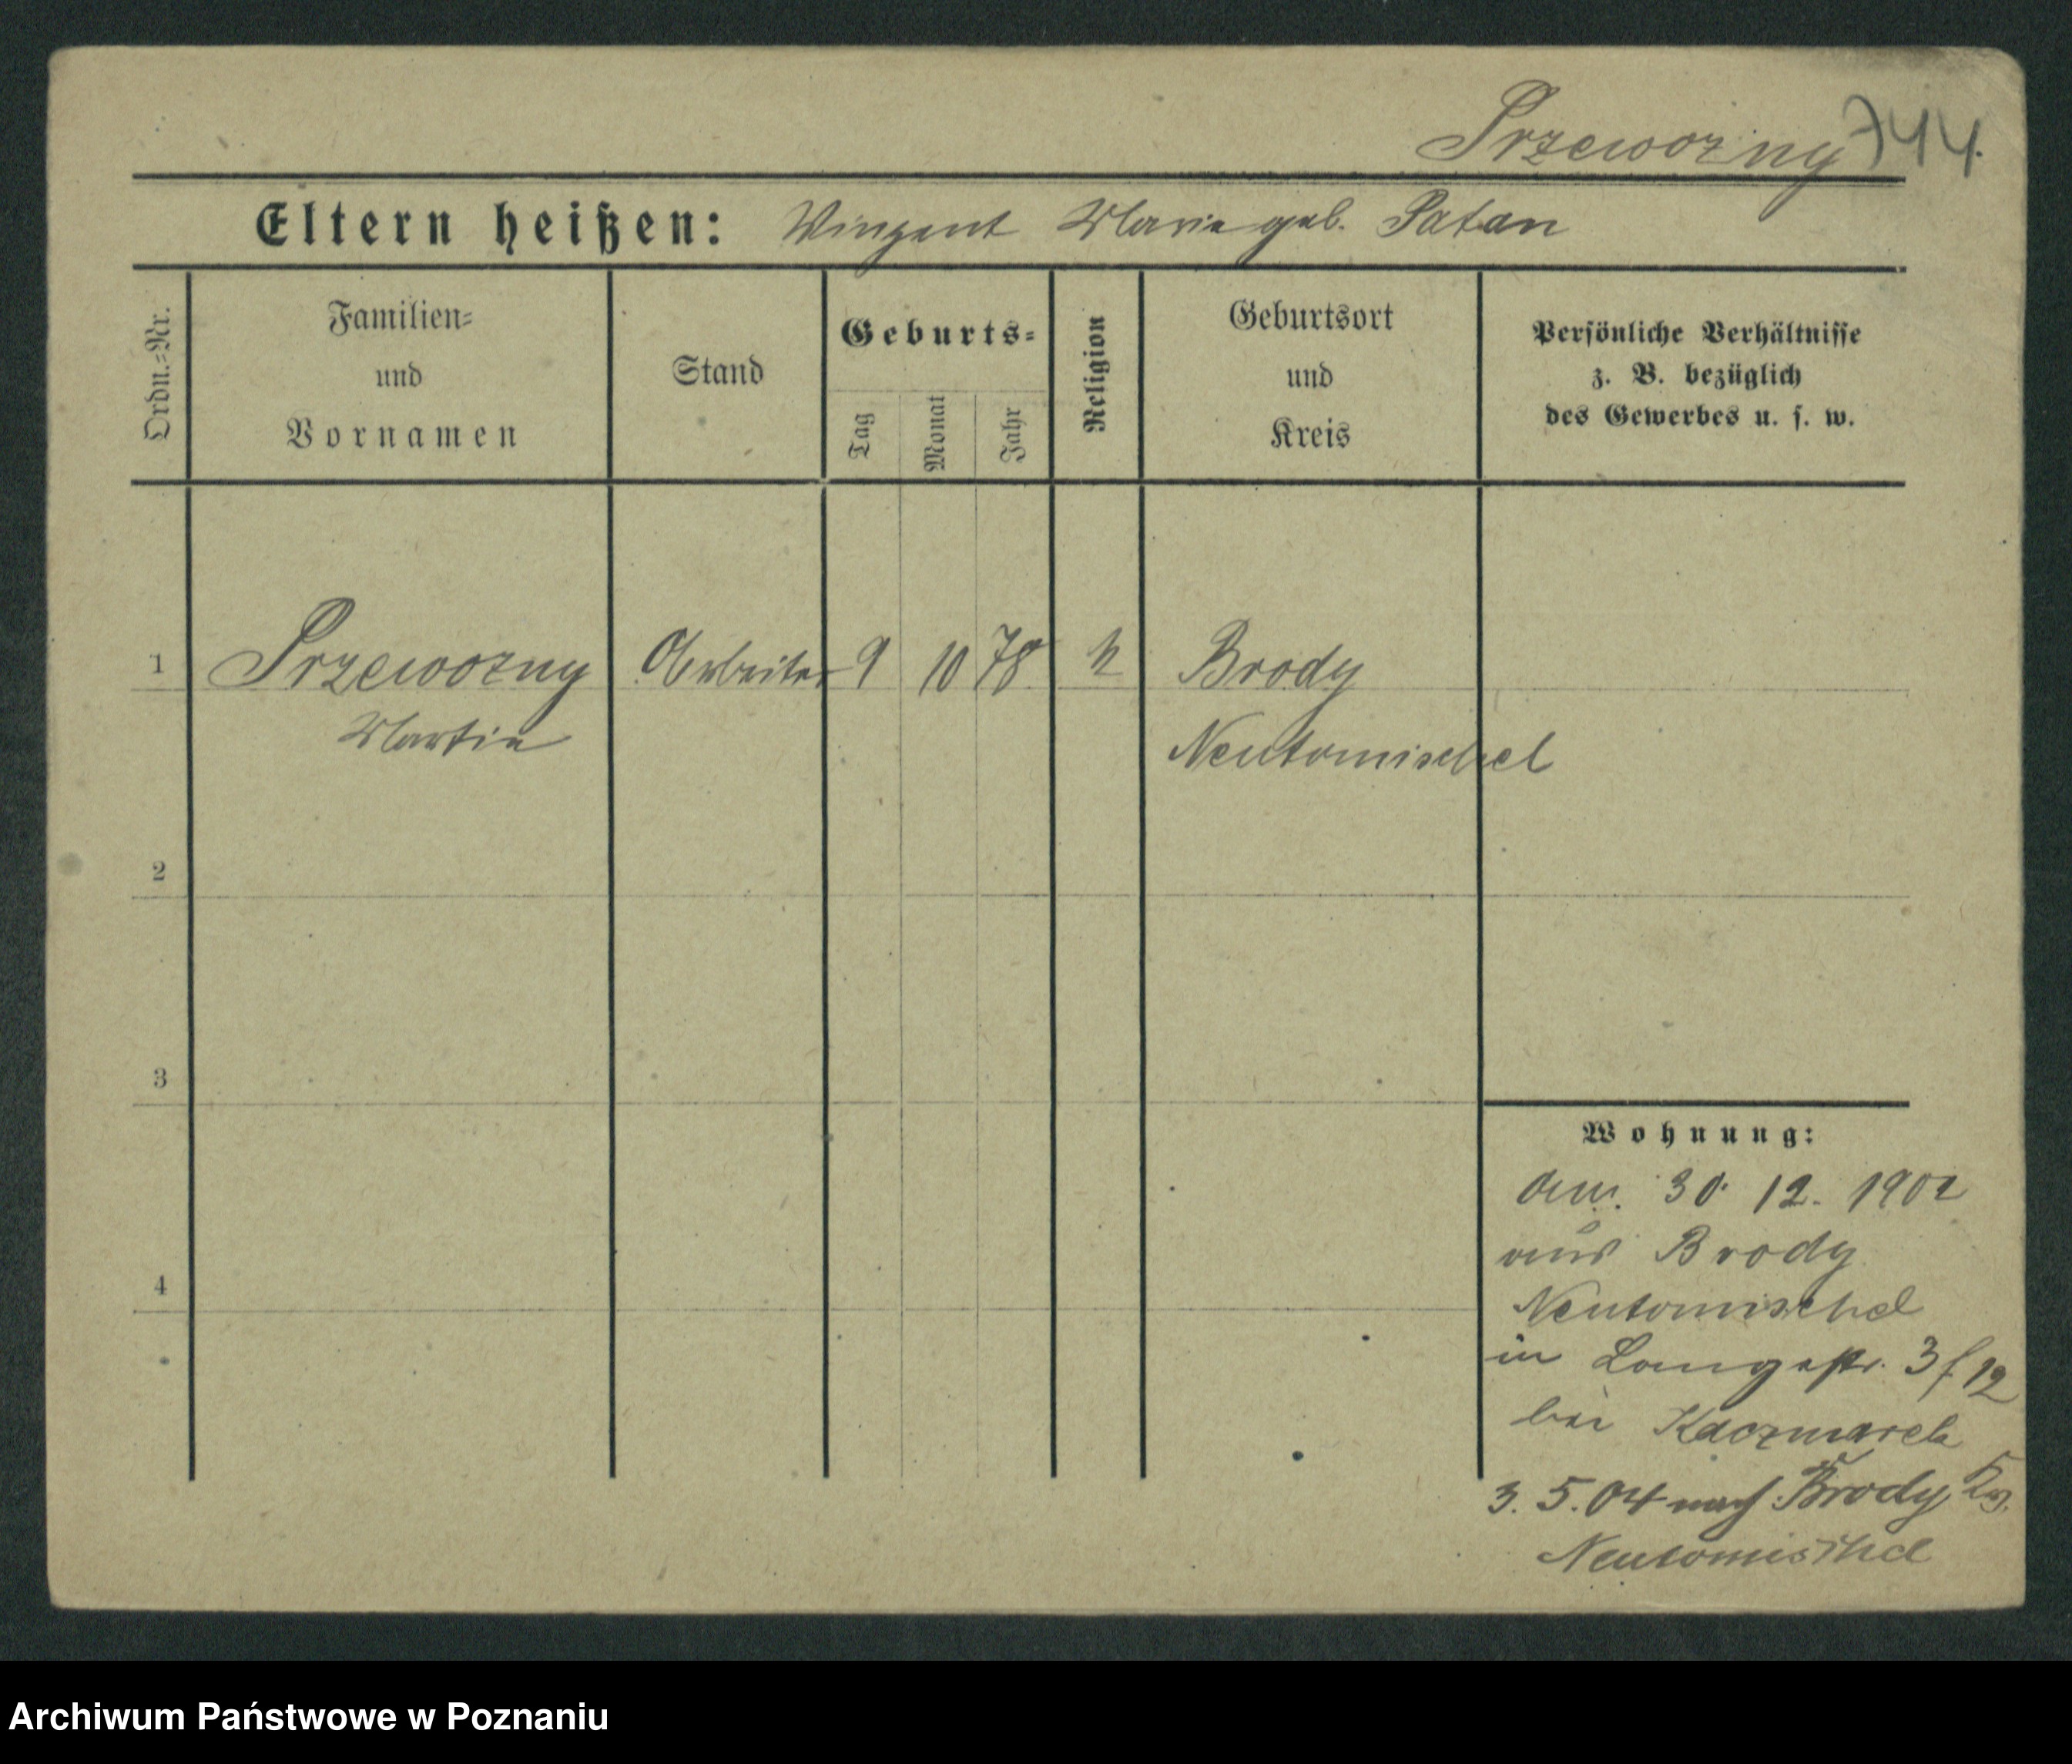 Przewozny 744.
Eltern heißen: Vinzent Marie geb. Patan
Ordn.=Nr.
Familien=
und
Vornamen
Stand
Geburts=
Tag
Monat
Jahr
Religion
Geburtsort
und
Kreis
Persönliche Verhältnisse
z. B. bezüglich
des Gewerbes u. s. w.
1 Przewozny Arbeiter 9 10 78 k Brody
Martin Neutomischel
2
3
4
Wohnung:
30. 12. 1902
aus Brody
Neutomischel
in Langestr. 3 f. 12
bei Kaczmarek
3. 5. 04 nach Brody Kr.
Neutomischel
Archiwum Państwowe w Poznaniu